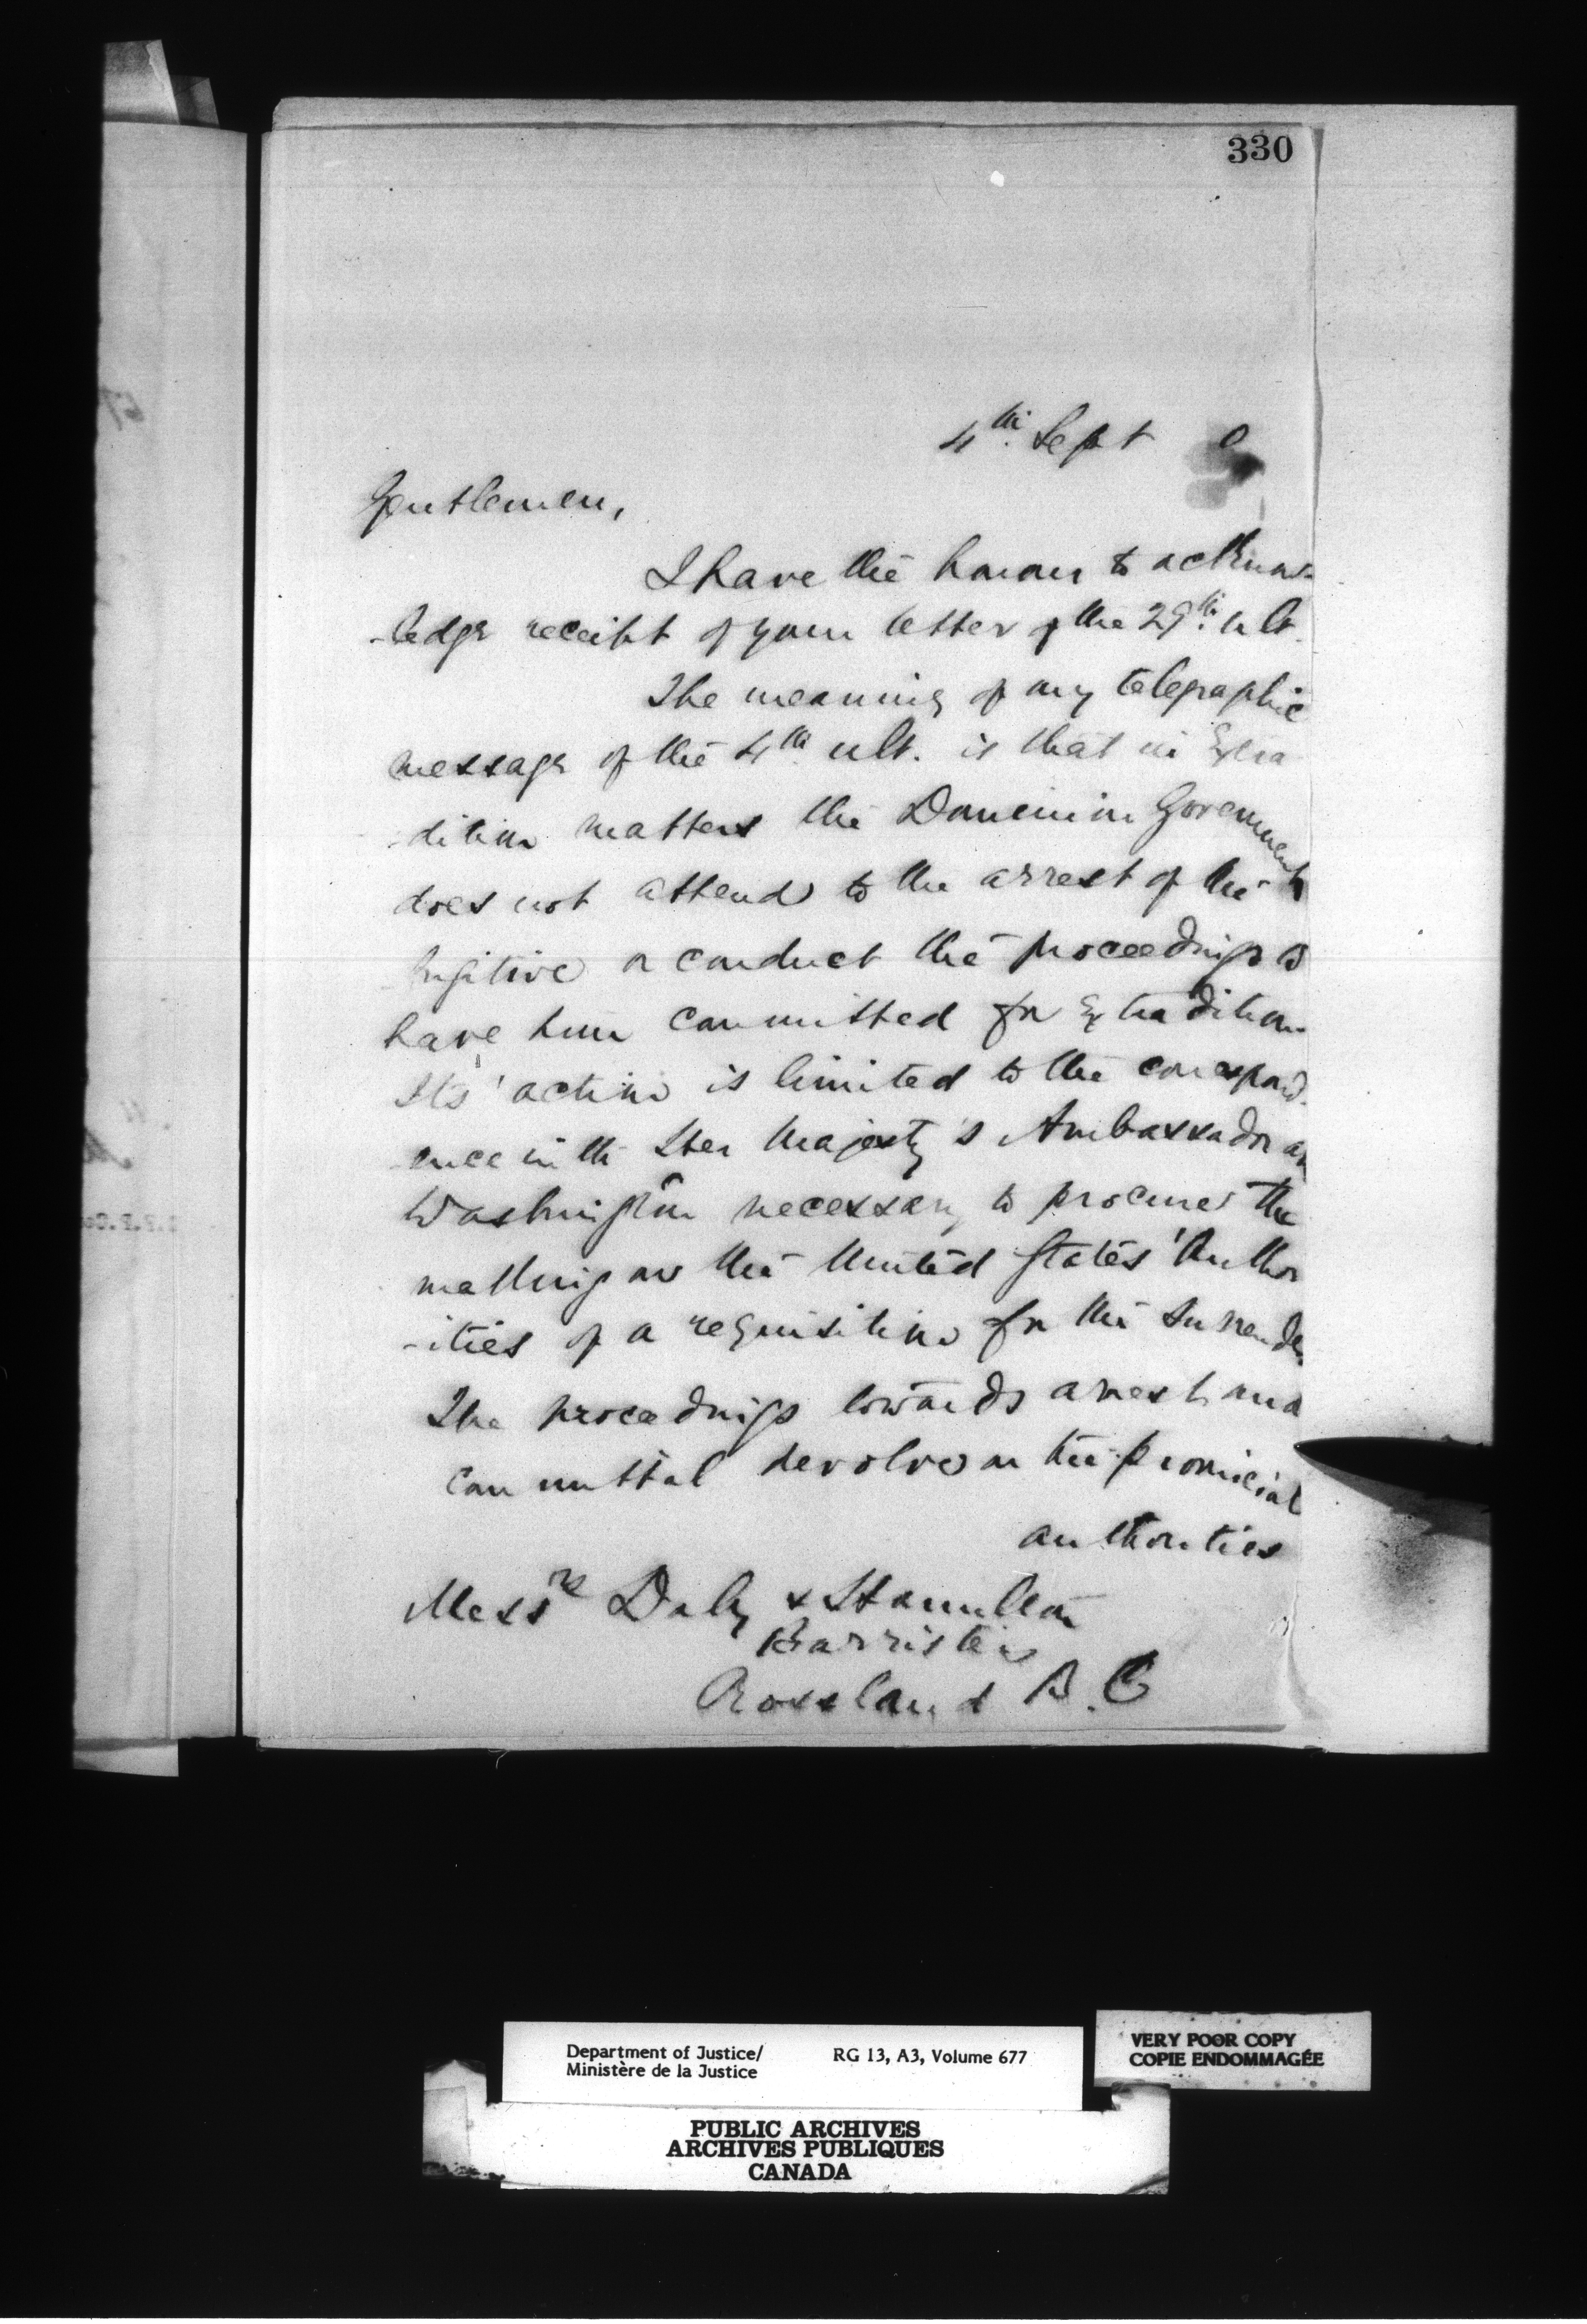 330
4th Sept
Gentlemen,
I have the honour to acknow-
-ledge receipt of your letter of the 29th ult.
The meaning of my telegraphic
message of the 4th ult. is that in Extra
-dition matters the Dominion Government
does not attend to the arrest of the
fugitive or conduct the proceedings to
have him committed for Extradition
Its' action is limited to the correspond-
-ence with Her Majesty's Ambassador at
Washington necessary to procure the
making on the United States' Author
-ities of a requisition for the surrender
The proceedings towards arrest and
committal devolve on the provincial
authorities
Messrs Daly & Hamilton
Barristers
Rossland B.C
Department of Justice/
Ministère de la Justice
RG 13, A3, Volume 677
VERY POOR COPY
COPIE ENDOMMAGÉE
PUBLIC ARCHIVES
ARCHIVES PUBLIQUES
CANADA